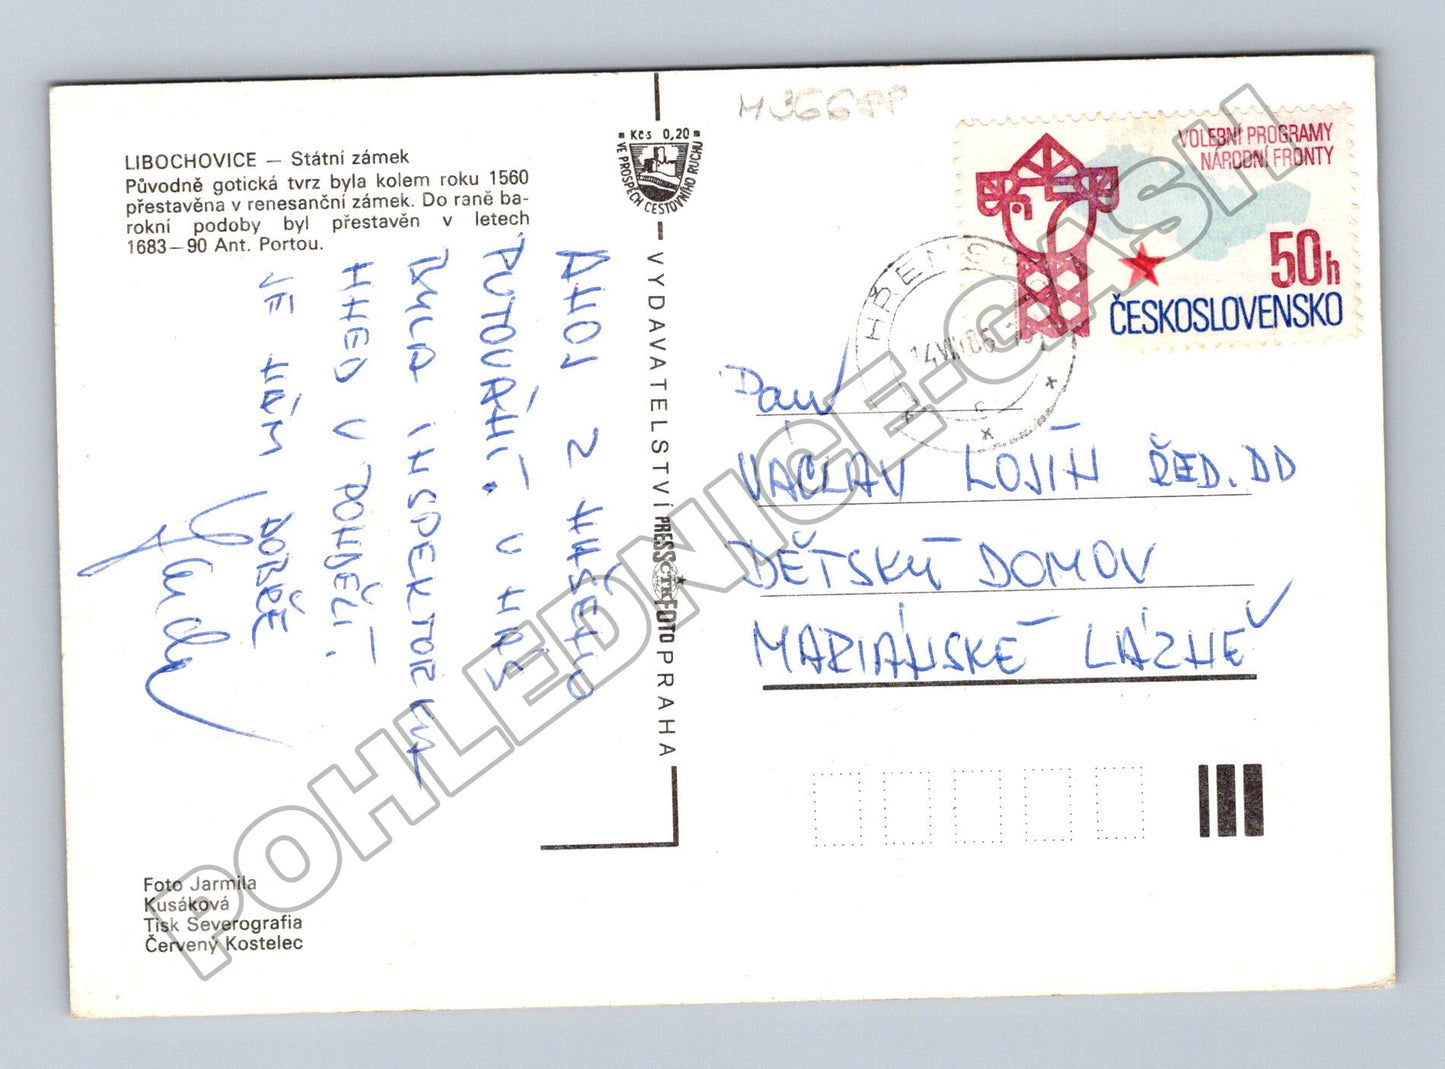 LIBOCHOVICE — Státní zámek
Původně gotická tvrz byla kolem roku 1560
přestavěna v renesanční zámek. Do raně ba-
rokní podoby byl přestavěn v letech
1683—90 Ant. Portou.
AHOJ Z NAŠEHO
PUTOVÁNÍ. U NÁS
BYLA INSPEKTORKA
HNED V PONDĚLÍ.
JE NÁM DOBŘE
Foto Jarmila
Kusáková
Tisk Severografia
Červený Kostelec
Kčs 0,20
VE PROSPĚCH CESTOVNÍHO RUCHU
VYDAVATELSTVÍ PRESSFOTO PRAHA
ČTK
M366PP
VOLEBNÍ PROGRAMY
NÁRODNÍ FRONTY
50h
ČESKOSLOVENSKO
HŘENSKO
Pan
VÁCLAV LOJÍN ŘED. DD
DĚTSKÝ DOMOV
MARIÁNSKÉ LÁZNĚ
POHLEDNICE-CASH